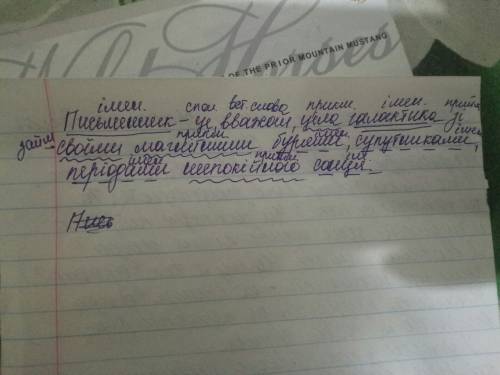 OF THE PRIOR MOUNTAIN MUSTANG
Horses
імен. спол. вст. слово прикм. імен. прийм.
Письменник - це вважай, ціла галактика зі
займ. прикм. імен. імен.
своїми магнітними бурями, супутниками,
імен. прикм. імен.
періодами неспокійного сонця.